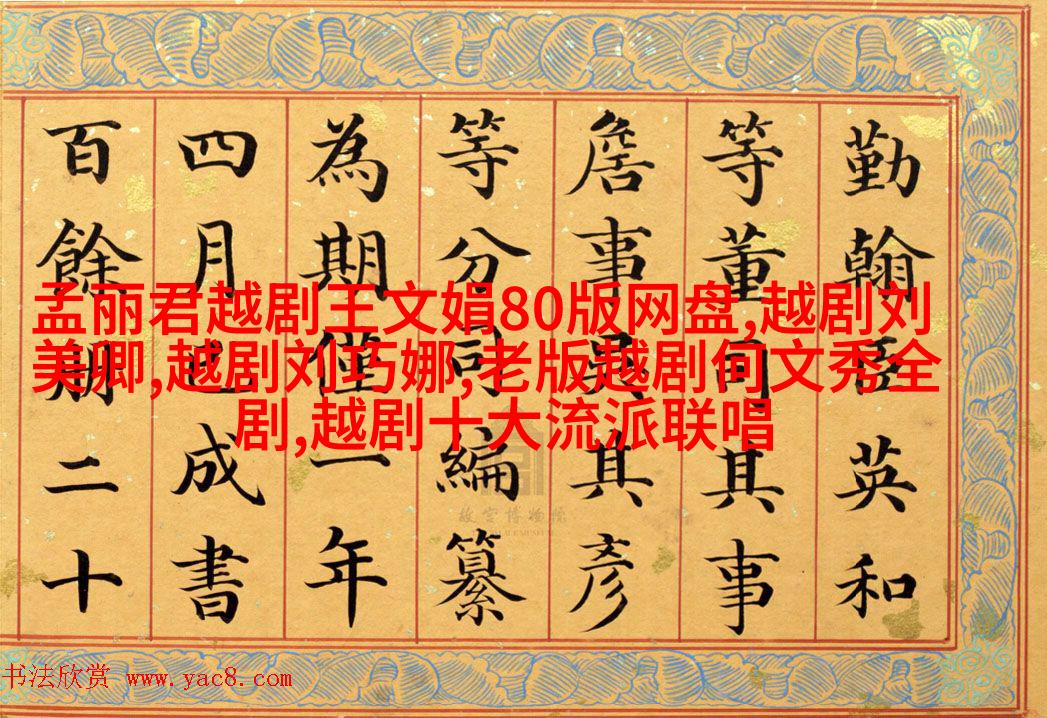 勤翰臣英和
等董司其事
詹事吳其彥
等分司編纂
為期僅一年
四月成書
百餘冊二十
孟丽君越剧王文娟80版网盘,越剧刘
美卿,越剧刘巧娜,老版越剧何文秀全
剧,越剧十大流派联唱
故宫博物院
书法欣赏 www.yac8.com